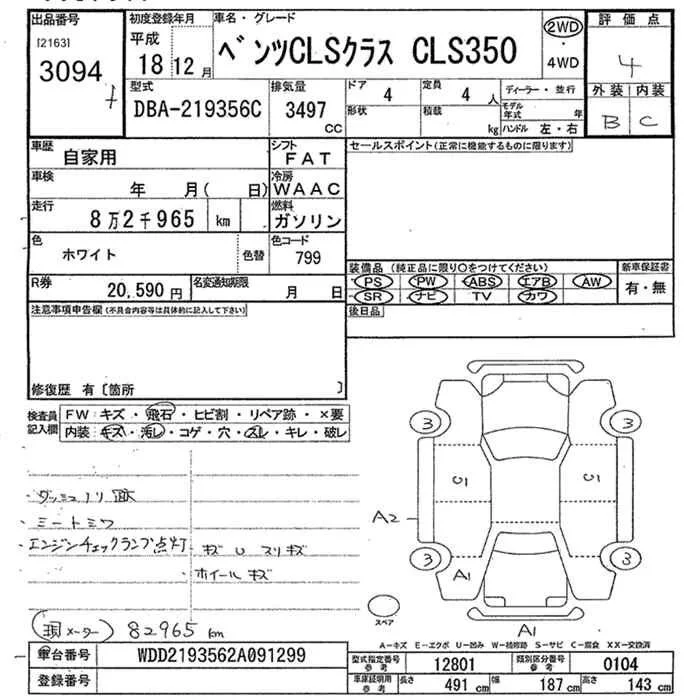 出品番号 初度登録年月 車名・グレード 評価点
[2163] 平成 2WD
3094 18 12月 ベンツCLSクラス CLS350 ・ 4
4WD
型式 排気量 ドア 定員 ディーラー・並行 外装 内装
DBA-219356C 3497 4 4人 モデル年式 年 B C
CC 形状 積載 kg ハンドル 左・右
車歴 自家用 シフト FAT セールスポイント(正常に機能するものに限ります)
車検 年 月( 日) 冷房 WAAC
走行 8万2千965 km 燃料 ガソリン
色 ホワイト 色替 色コード 799
装備品(純正品に限り○をつけてください) 新車保証書
R券 20,590円 名変通知期限 月 日 PS PW ABS エアB AW 有・無
SR ナビ TV カワ
注意事項申告欄(不具合内容等は具体的に記入して下さい) 後日品
修復歴 有〔箇所 〕
検査員記入欄 FW:キズ・飛石・ヒビ割・リペア跡・×要
内装:キズ・汚レ・コゲ・穴・スレ・キレ・破レ
3 3
C1 C1
A2
エンジンチェックランプ点灯 キズ U スリキズ
ホイールキズ
3 3
A1
スペア
A1
現メーター 82965 km
A-キズ E-エクボ U-凹み W-補修跡 S-サビ C-腐食 XX-交換済
車台番号 WDD2193562A091299 型式指定番号 参考 12801 類別区分番号 参考 0104
登録番号 車庫証明用 参考 長さ 491cm 幅 187cm 高さ 143cm